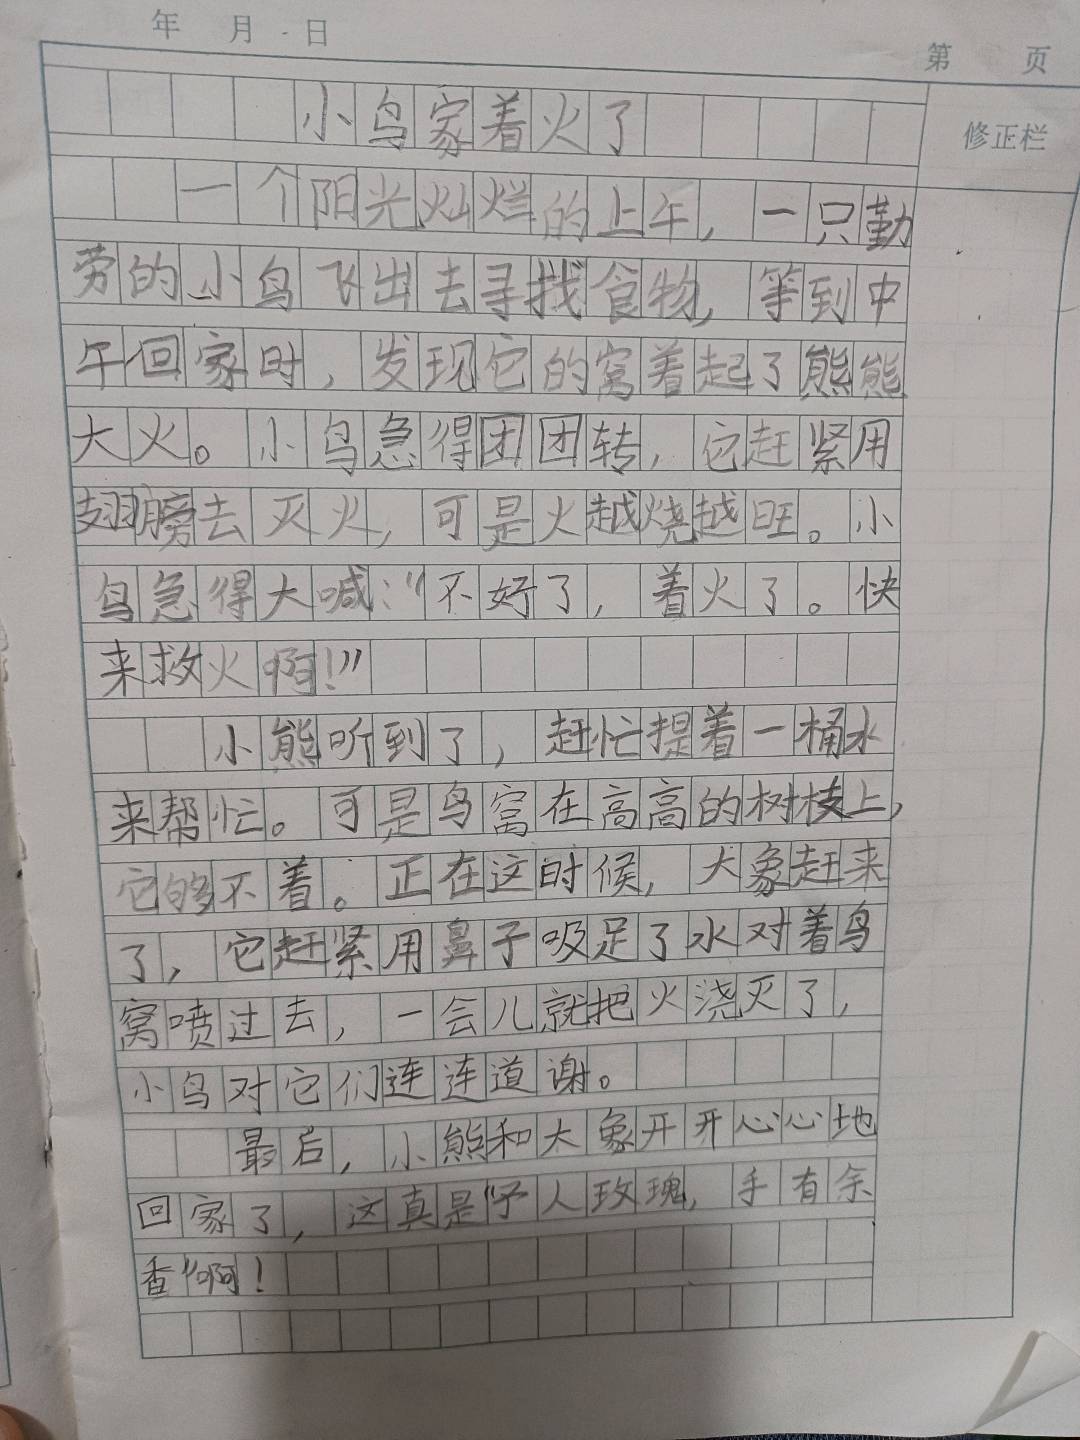 年 月 日
第 页
修正栏
小鸟家着火了
一个阳光灿烂的上午，一只勤
劳的小鸟飞出去寻找食物，等到中
午回家时，发现它的窝着起了熊熊
大火。小鸟急得团团转，它赶紧用
翅膀去灭火，可是火越烧越旺。小
鸟急得大喊：“不好了，着火了。快
来救火啊！”
小熊听到了，赶忙提着一桶水
来帮忙。可是鸟窝在高高的树枝上，
它够不着。正在这时候，大象赶来
了，它赶紧用鼻子吸足了水对着鸟
窝喷过去，一会儿就把火浇灭了，
小鸟对它们连连道谢。
最后，小熊和大象开开心心地
回家了，这真是“予人玫瑰，手有余
香”啊！